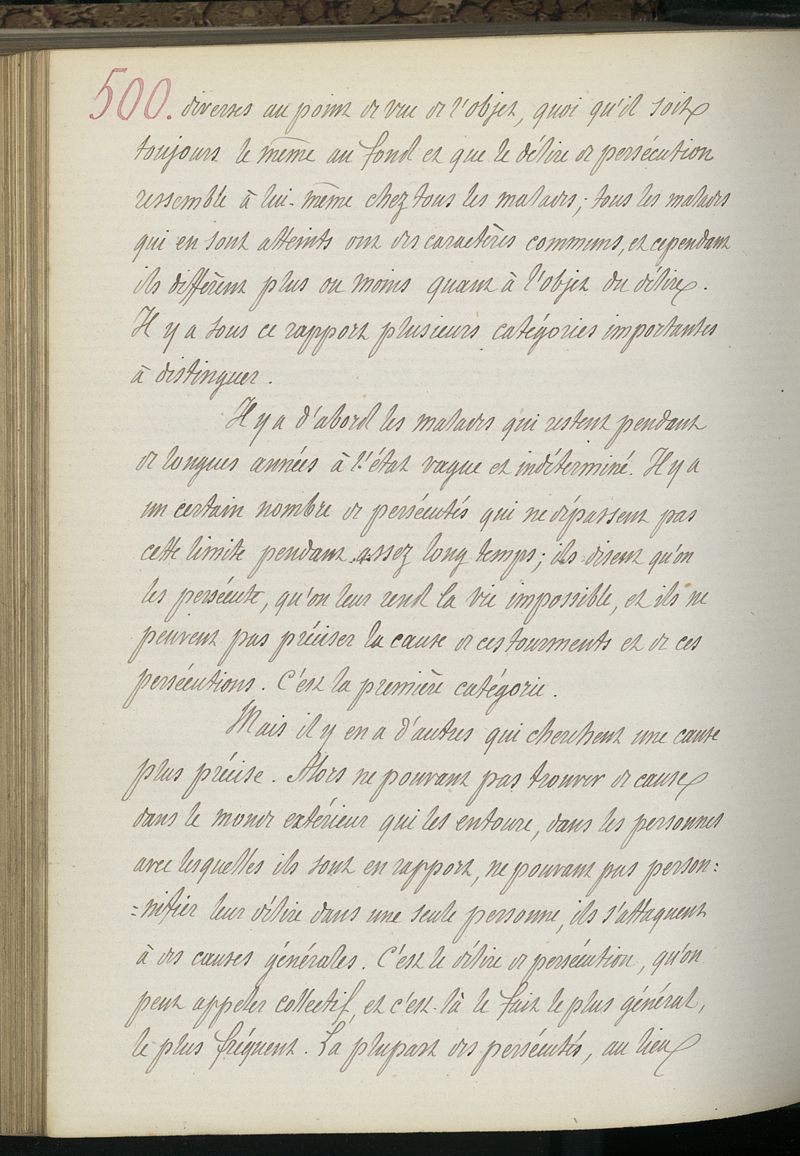 500. diverses au point de vue de l'objet, quoi qu'il soit
toujours le même au fond et que le délire de persécution
ressemble à lui-même chez tous les malades; tous les malades
qui en sont atteints ont des caractères communs, et cependant
ils diffèrent plus ou moins quant à l'objet du délire.
Il y a sous ce rapport plusieurs catégories importantes
à distinguer.
Il y a d'abord les malades qui restent pendant
de longues années à l'état vague et indéterminé. Il y a
un certain nombre de persécutés qui ne dépassent pas
cette limite pendant assez long temps; ils disent qu'on
les persécute, qu'on leur rend la vie impossible, et ils ne
peuvent pas préciser la cause de ces tourments et de ces
persécutions. C'est la première catégorie.
Mais il y en a d'autres qui cherchent une cause
plus précise. Alors ne pouvant pas trouver de cause
dans le monde extérieur qui les entoure, dans les personnes
avec lesquelles ils sont en rapport, ne pouvant pas person=
=nifier leur délire dans une seule personne, ils s'attaquent
à des causes générales. C'est le délire de persécution, qu'on
peut appeler collectif, et c'est là le fait le plus général,
le plus fréquent. La plupart des persécutés, au lieu